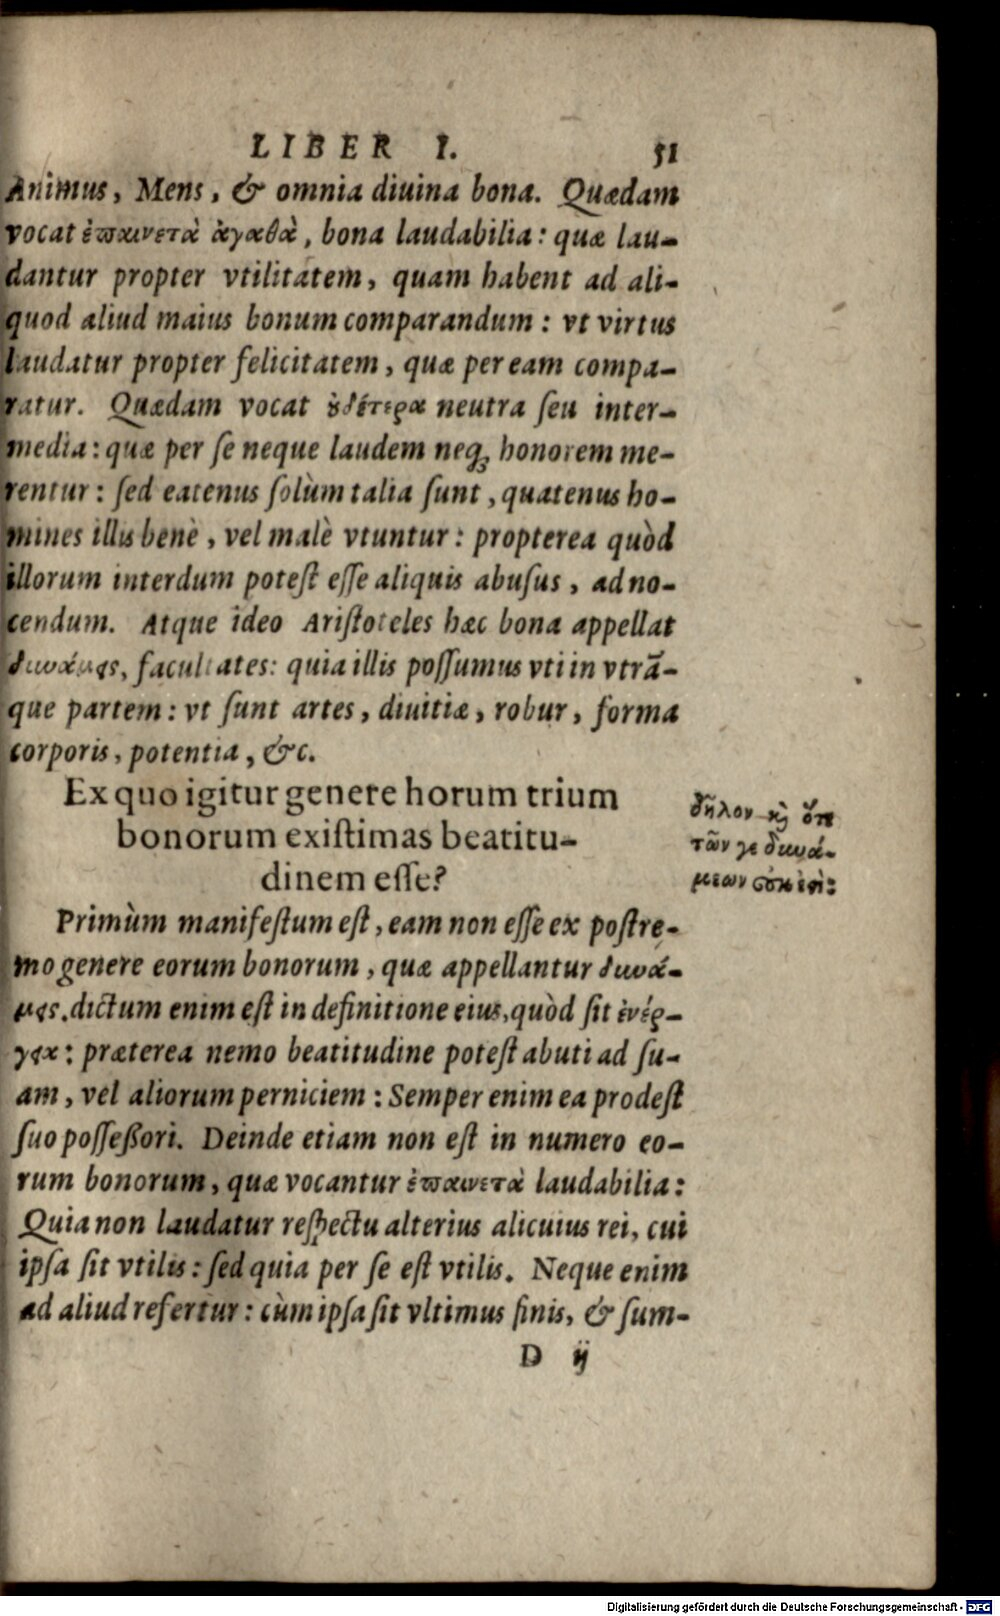 LIBER I. 51
Animus, Mens, & omnia diuina bona. Quædam
vocat ἐπαινετὰ ἀγαθὰ, bona laudabilia: quæ lau-
dantur propter vtilitatem, quam habent ad ali-
quod aliud maius bonum comparandum: vt virtus
laudatur propter felicitatem, quæ per eam compa-
ratur. Quædam vocat ȣ̓δέτερα neutra ſeu inter-
media: quæ per ſe neque laudem neq; honorem me-
rentur: ſed eatenus ſolùm talia ſunt, quatenus ho-
mines illis benè, vel malè vtuntur: propterea quòd
illorum interdum poteſt eſſe aliquis abuſus, ad no-
cendum. Atque ideo Ariſtoteles hæc bona appellat
δυνάμεις, facultates: quia illis poſſumus vti in vtrã-
que partem: vt ſunt artes, diuitiæ, robur, forma
corporis, potentia, &c.
Ex quo igitur genere horum trium
bonorum exiſtimas beatitu-
dinem eſſe?
δῆλον ϗ̀ ὅτι
τῶν γε δυνά-
μεων οὐκ ἐστὶ:
Primùm manifeſtum eſt, eam non eſſe ex poſtre-
mo genere eorum bonorum, quæ appellantur δυνά-
μεις. dictum enim eſt in definitione eius, quòd ſit ἐνέρ-
γεια: præterea nemo beatitudine poteſt abuti ad ſu-
am, vel aliorum perniciem: Semper enim ea prodeſt
ſuo poſſeßori. Deinde etiam non eſt in numero eo-
rum bonorum, quæ vocantur ἐπαινετὰ laudabilia:
Quia non laudatur reſpectu alterius alicuius rei, cui
ipſa ſit vtilis: ſed quia per ſe eſt vtilis. Neque enim
ad aliud refertur: cùm ipſa ſit vltimus finis, & ſum-
D ij
Digitalisierung gefördert durch die Deutsche Forschungsgemeinschaft - DFG